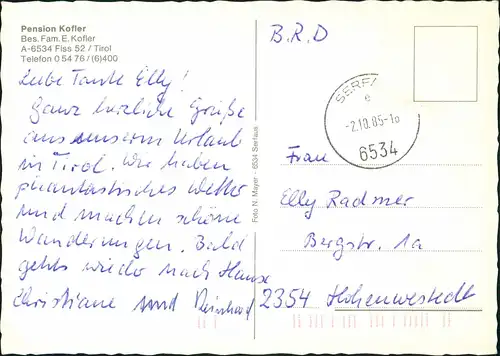 Pension Kofler
Bes. Fam. E. Kofler
A-6534 Fiss 52 / Tirol
Telefon 0 54 76 / (6)400
Liebe Tante Elly!
Ganz herzliche Grüße
aus unserm Urlaub
in Tirol. Wir haben
phantastisches Wetter
und machen schöne
Wanderungen. Bald
gehts wieder nach Hause
Christiane und Reinhard
Foto N. Mayer - 6534 Serfaus
B.R.D
SERFA
e
-2.10.85-10
6534
Frau
Elly Radmer
Bergstr. 1a
2354 Hohenwestedt